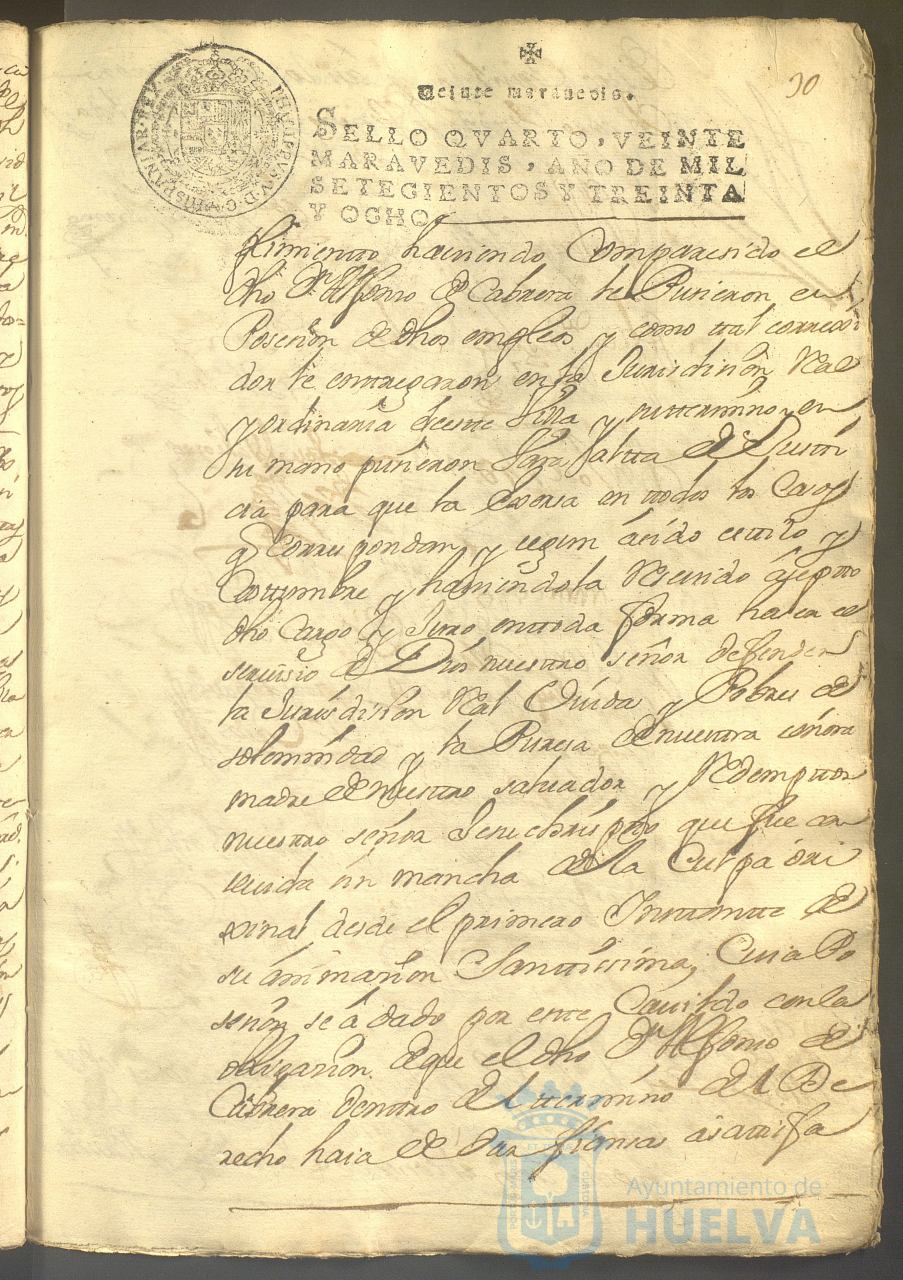 30
Veinte maravedis.
SELLO QVARTO, VEINTE
MARAVEDIS, AÑO DE MIL
SETECIENTOS Y TREINTA
Y OCHO.
PHILIPPUS V D G HISPANIAR REX
plimiento haviendo Comparesido el
dho Dn Alfonso de Cabrera le Pusieron en
Posesion de dhos empleos y como tal correxi
dor le entregaron en la Jurisdision Real
y ordinaria de esta Villa y su termino y en
su mano pusieron Vara alta de Justi
cia para que la exersa en todos los casos
q Correspondan y segun a sido estilo y
Costumbre y haviendola Resevido asepto
dho Cargo y Juro en toda forma haser el
servisio de Dios nuestro señor defender
la Jurisdision Real Viuda y Pobres de
solemnidad y la Puresa de nuestra señora
madre de nuestro salvador y Redemptor
nuestro señor Jesuchristo que fue con
sevida sin mancha de la Culpa ori
xinal desde el primero Instante de
su animasion Santissima, Cuia Po
sesion se a dado por este Cavildo con la
obligasion de que el dho Dn Alfonso de
Cabrera dentro del termino del De
recho haia de dar fianzas a satisfa
Ayuntamiento de
HUELVA